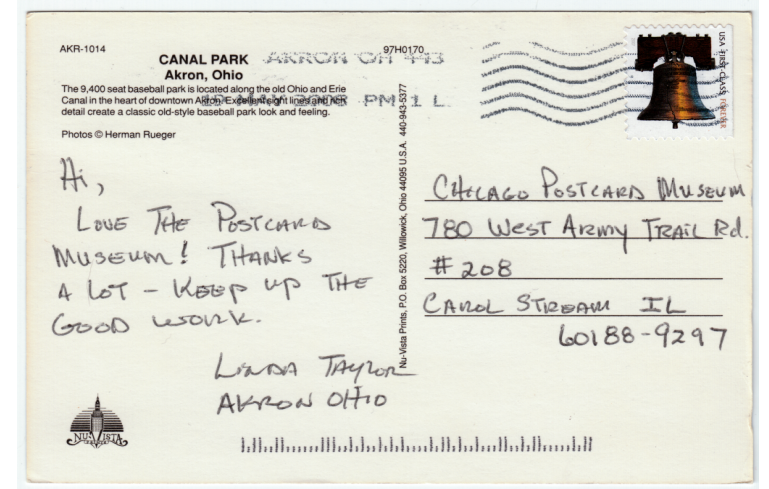 AKR-1014
97H0170
CANAL PARK
Akron, Ohio
The 9,400 seat baseball park is located along the old Ohio and Erie
Canal in the heart of downtown Akron. Excellent sight lines and rich
detail create a classic old-style baseball park look and feeling.
Photos © Herman Rueger
AKRON OH 443
MAY 2008 PM 1 L
USA FIRST-CLASS FOREVER
Hi,
LOVE THE POSTCARD
MUSEUM! THANKS
A LOT - KEEP UP THE
GOOD WORK.
LINDA TAYLOR
AKRON OHIO
Nu-Vista Prints, P.O. Box 5220, Willowick, Ohio 44095 U.S.A. 440-943-5377
CHICAGO POSTCARD MUSEUM
780 WEST ARMY TRAIL Rd.
#208
CAROL STREAM IL
60188-9297
NU-VISTA